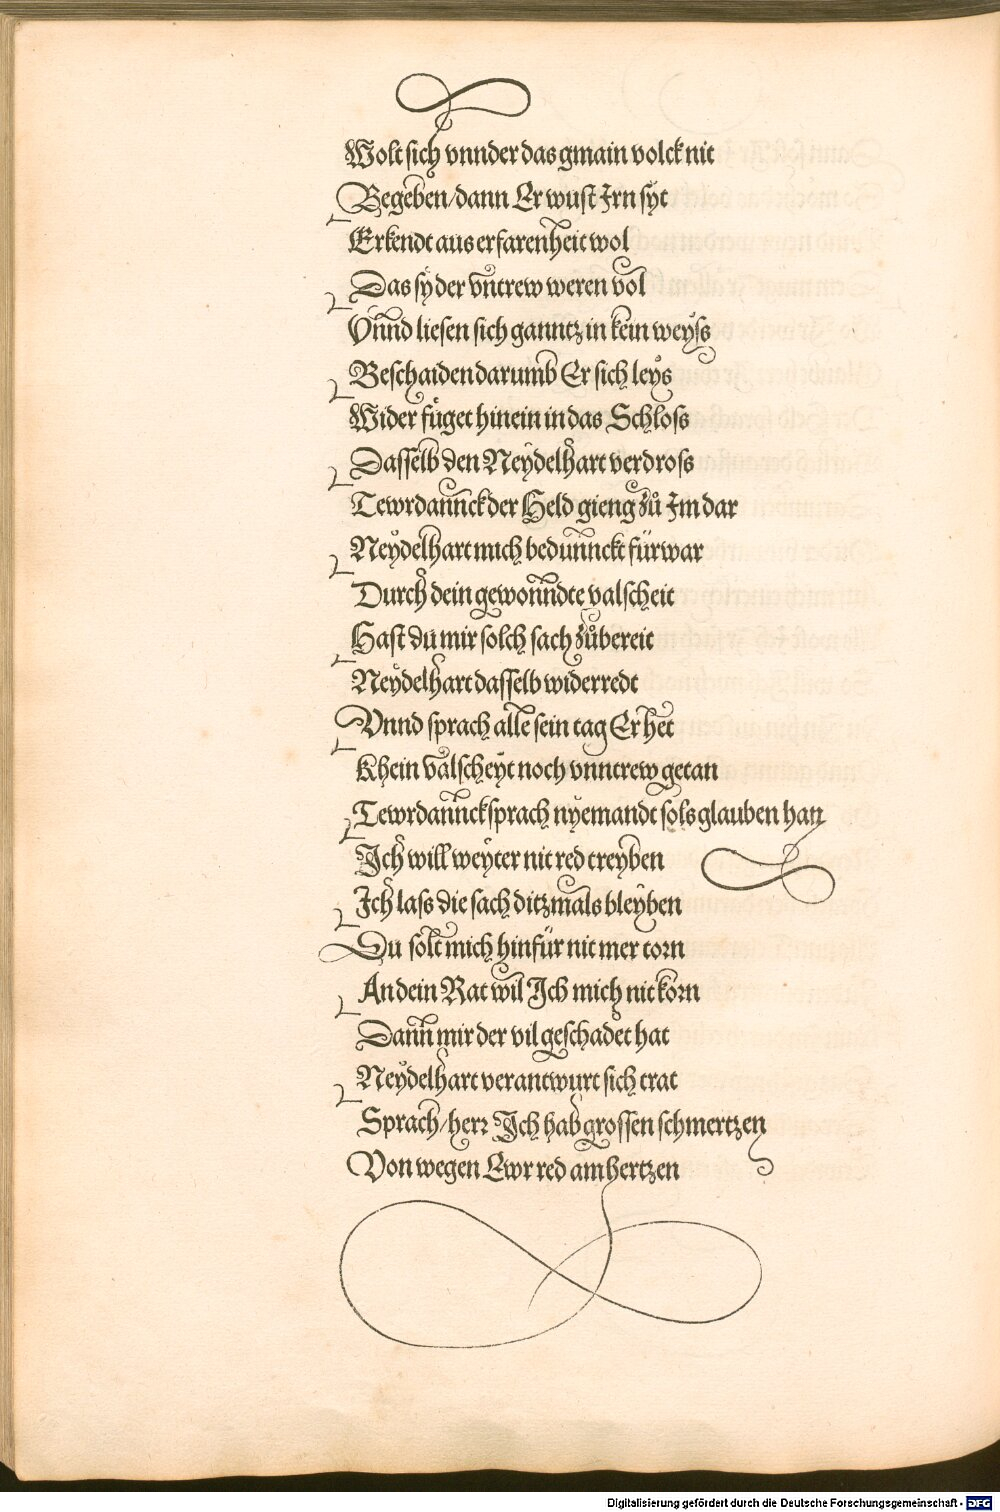 Wolt sich vnnder das gmain volck nit
Begeben/dann Er wust Irn syt
Erkendt aus erfarenheit wol
Das sÿ der vntrew weren vol
Vnnd liesen sich ganntz in kein weyſs
Beschaiden darumb Er sich leys
Wider füget hinein in das Schloſs
Dasselb den Neÿdelhart verdroſs
Tewrdannck der Held gieng zů Im dar
Neÿdelhart mich bedunnckt fürwar
Durch dein gewonndte valscheit
Hast du mir solch sach zůbereit
Neÿdelhart dasselb widerredt
Vnnd sprach alle sein tag Er het
Khein valscheÿt noch vnntrew getan
Tewrdannck sprach nÿemandt sols glauben han
Ich will weÿter nit red treyben
Ich laſs die sach ditzmals bleÿben
Du solt mich hinfür nit mer torn
An dein Rat wil Ich mich nit korn
Dann mir der vil geschadet hat
Neÿdelhart verantwurt sich trat
Sprach/herr Ich hab grossen schmertzen
Von wegen Ewr red am hertzen
Digitalisierung gefördert durch die Deutsche Forschungsgemeinschaft - DFG